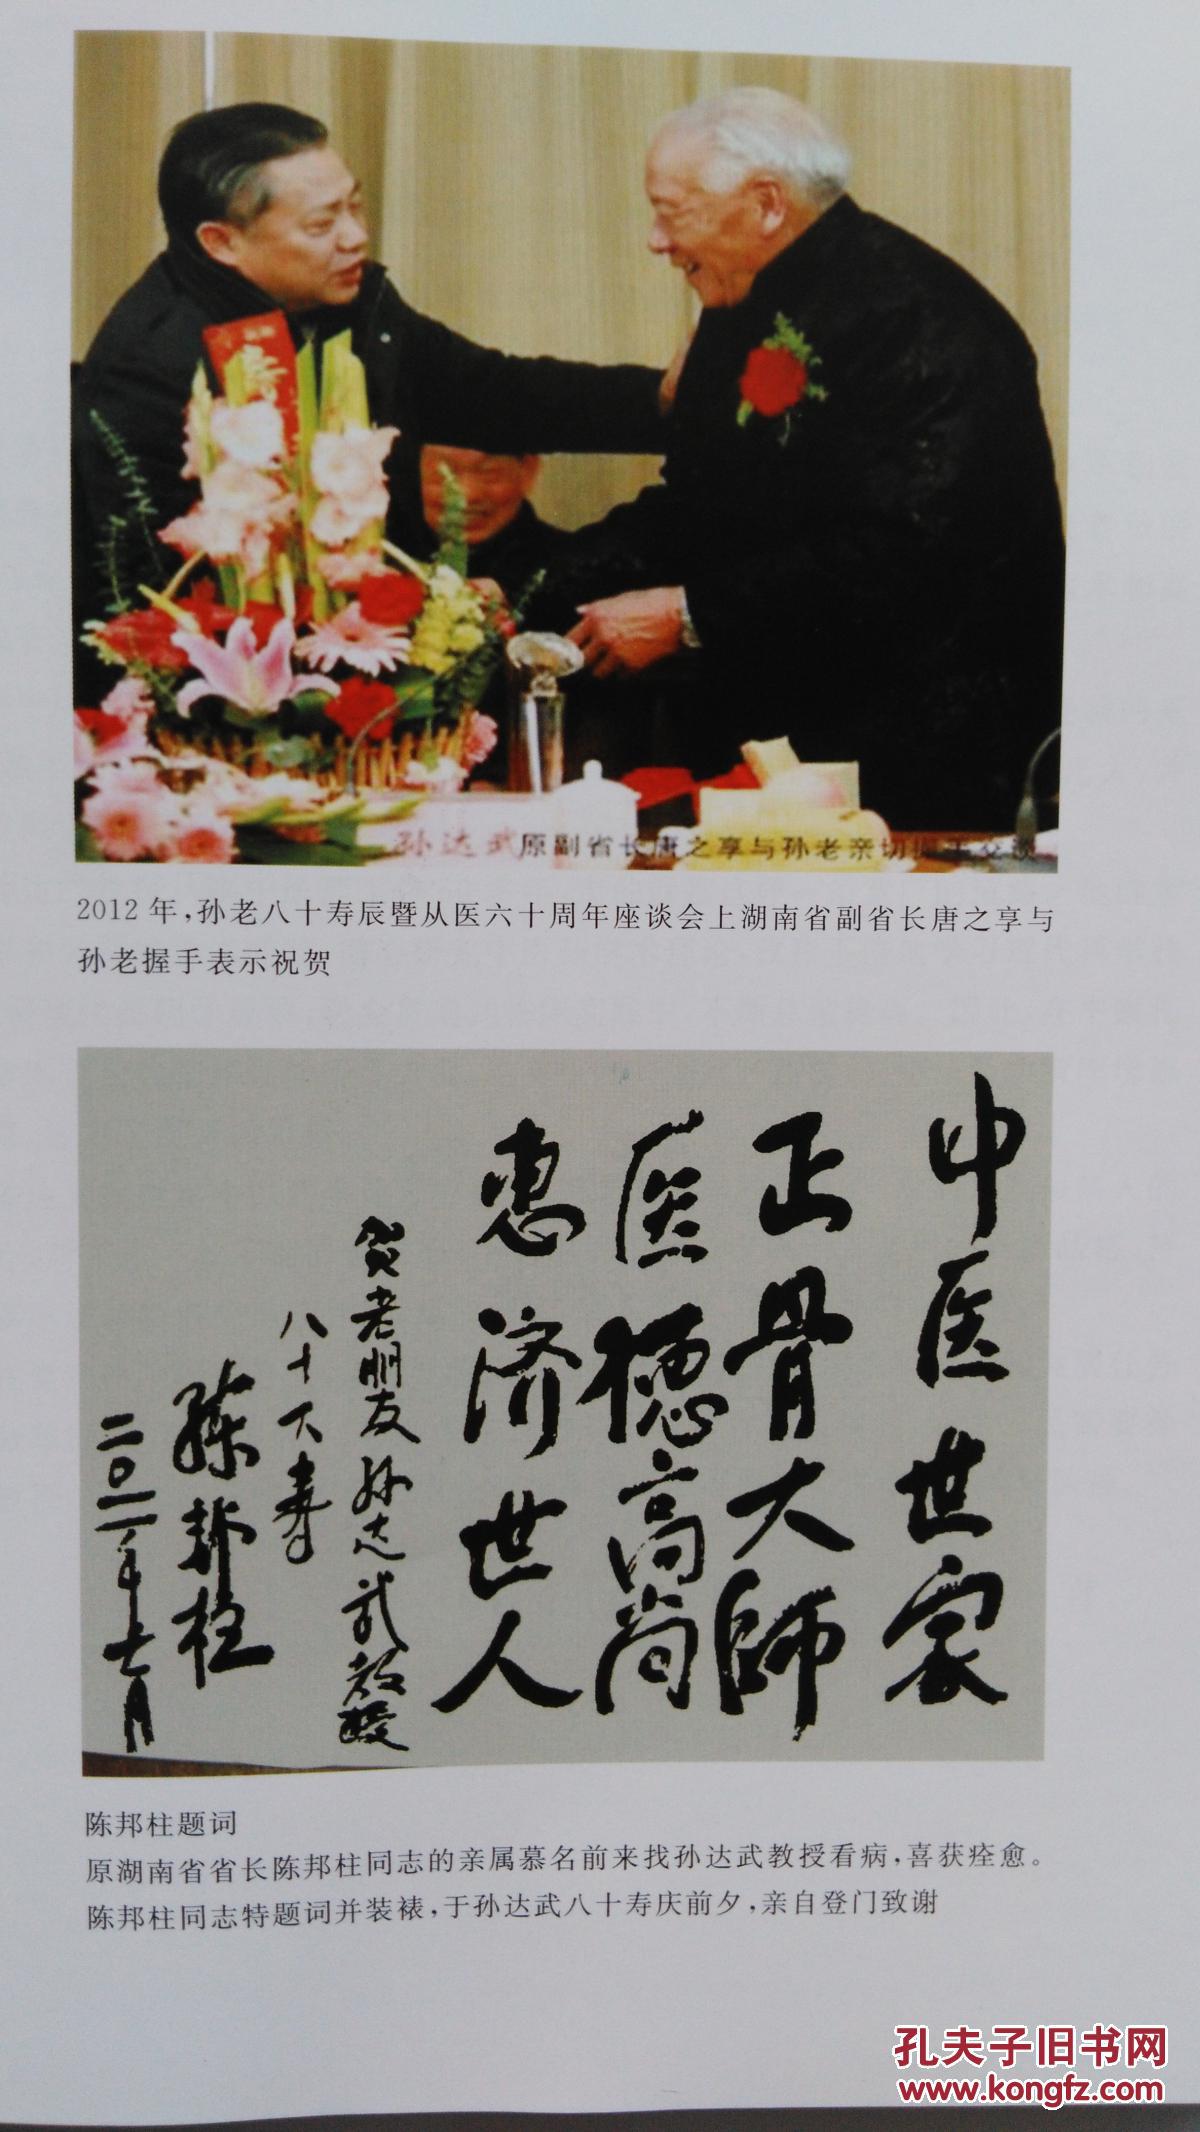 寿
孙达武
原副省长唐之享与孙老亲切握手交谈
2012年，孙老八十寿辰暨从医六十周年座谈会上湖南省副省长唐之享与
孙老握手表示祝贺
中医世家
正骨大师
医德高尚
惠济世人
贺老朋友孙达武教授
八十大寿
陈邦柱
二〇一一年七月
陈邦柱题词
原湖南省省长陈邦柱同志的亲属慕名前来找孙达武教授看病，喜获痊愈。
陈邦柱同志特题词并装裱，于孙达武八十寿庆前夕，亲自登门致谢
孔夫子旧书网
www.kongfz.com